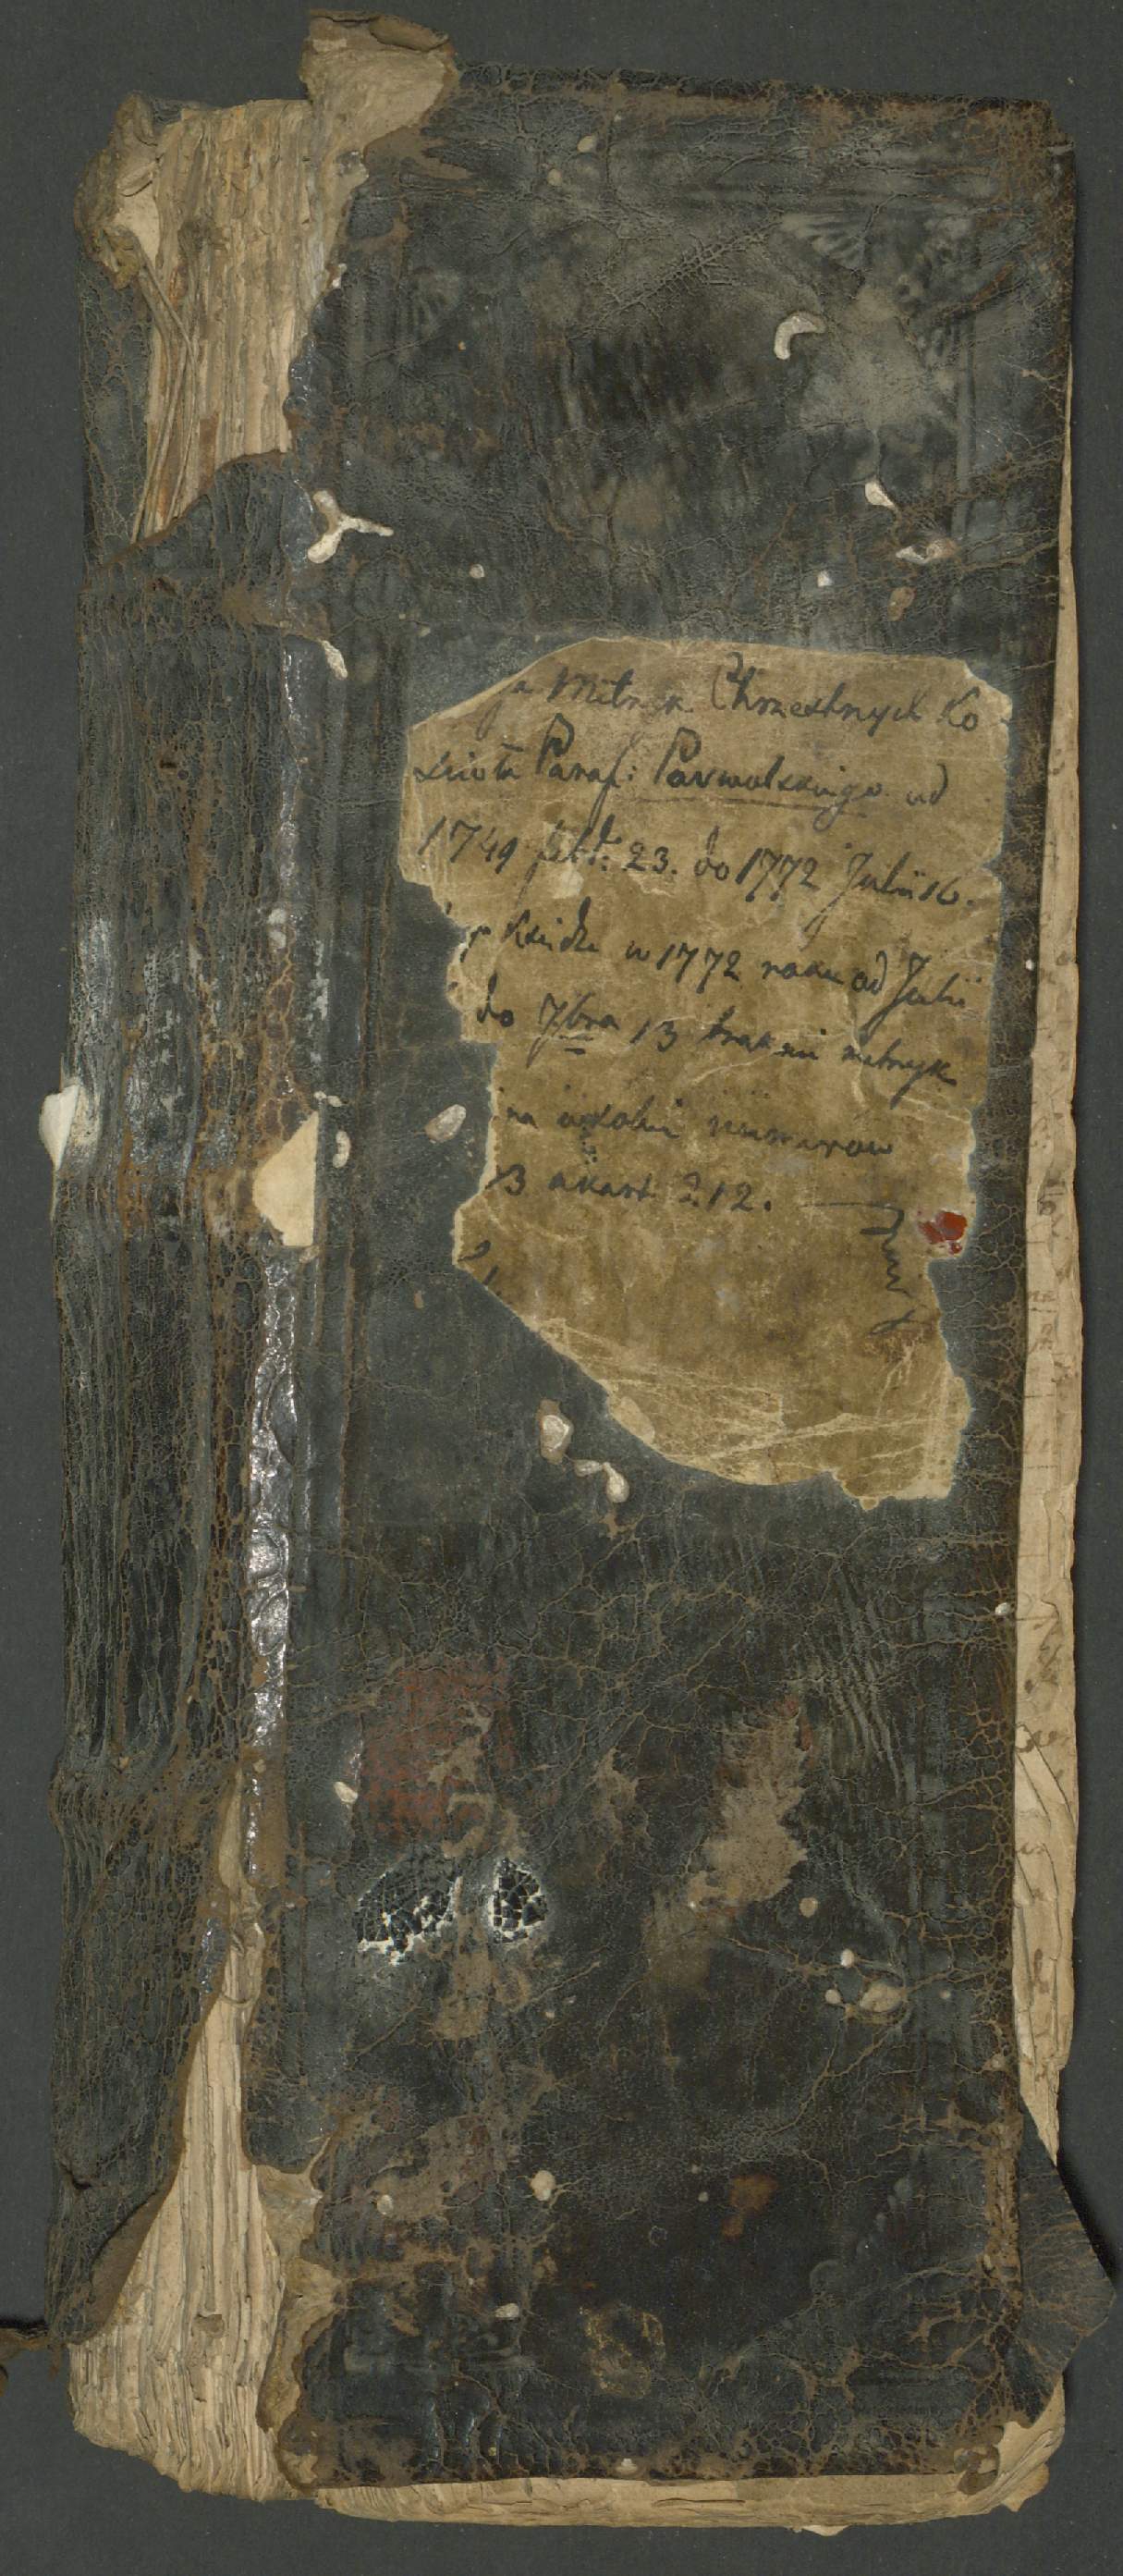 a Metryk Chrzestnych Ko
scioła Paraf: Parwolskiego od
1749 febr: 23. do 1772 Julii 16.
w 1772 roku od Julii
do 7bra 13 brakuie metryk
na numerow
akart 212.